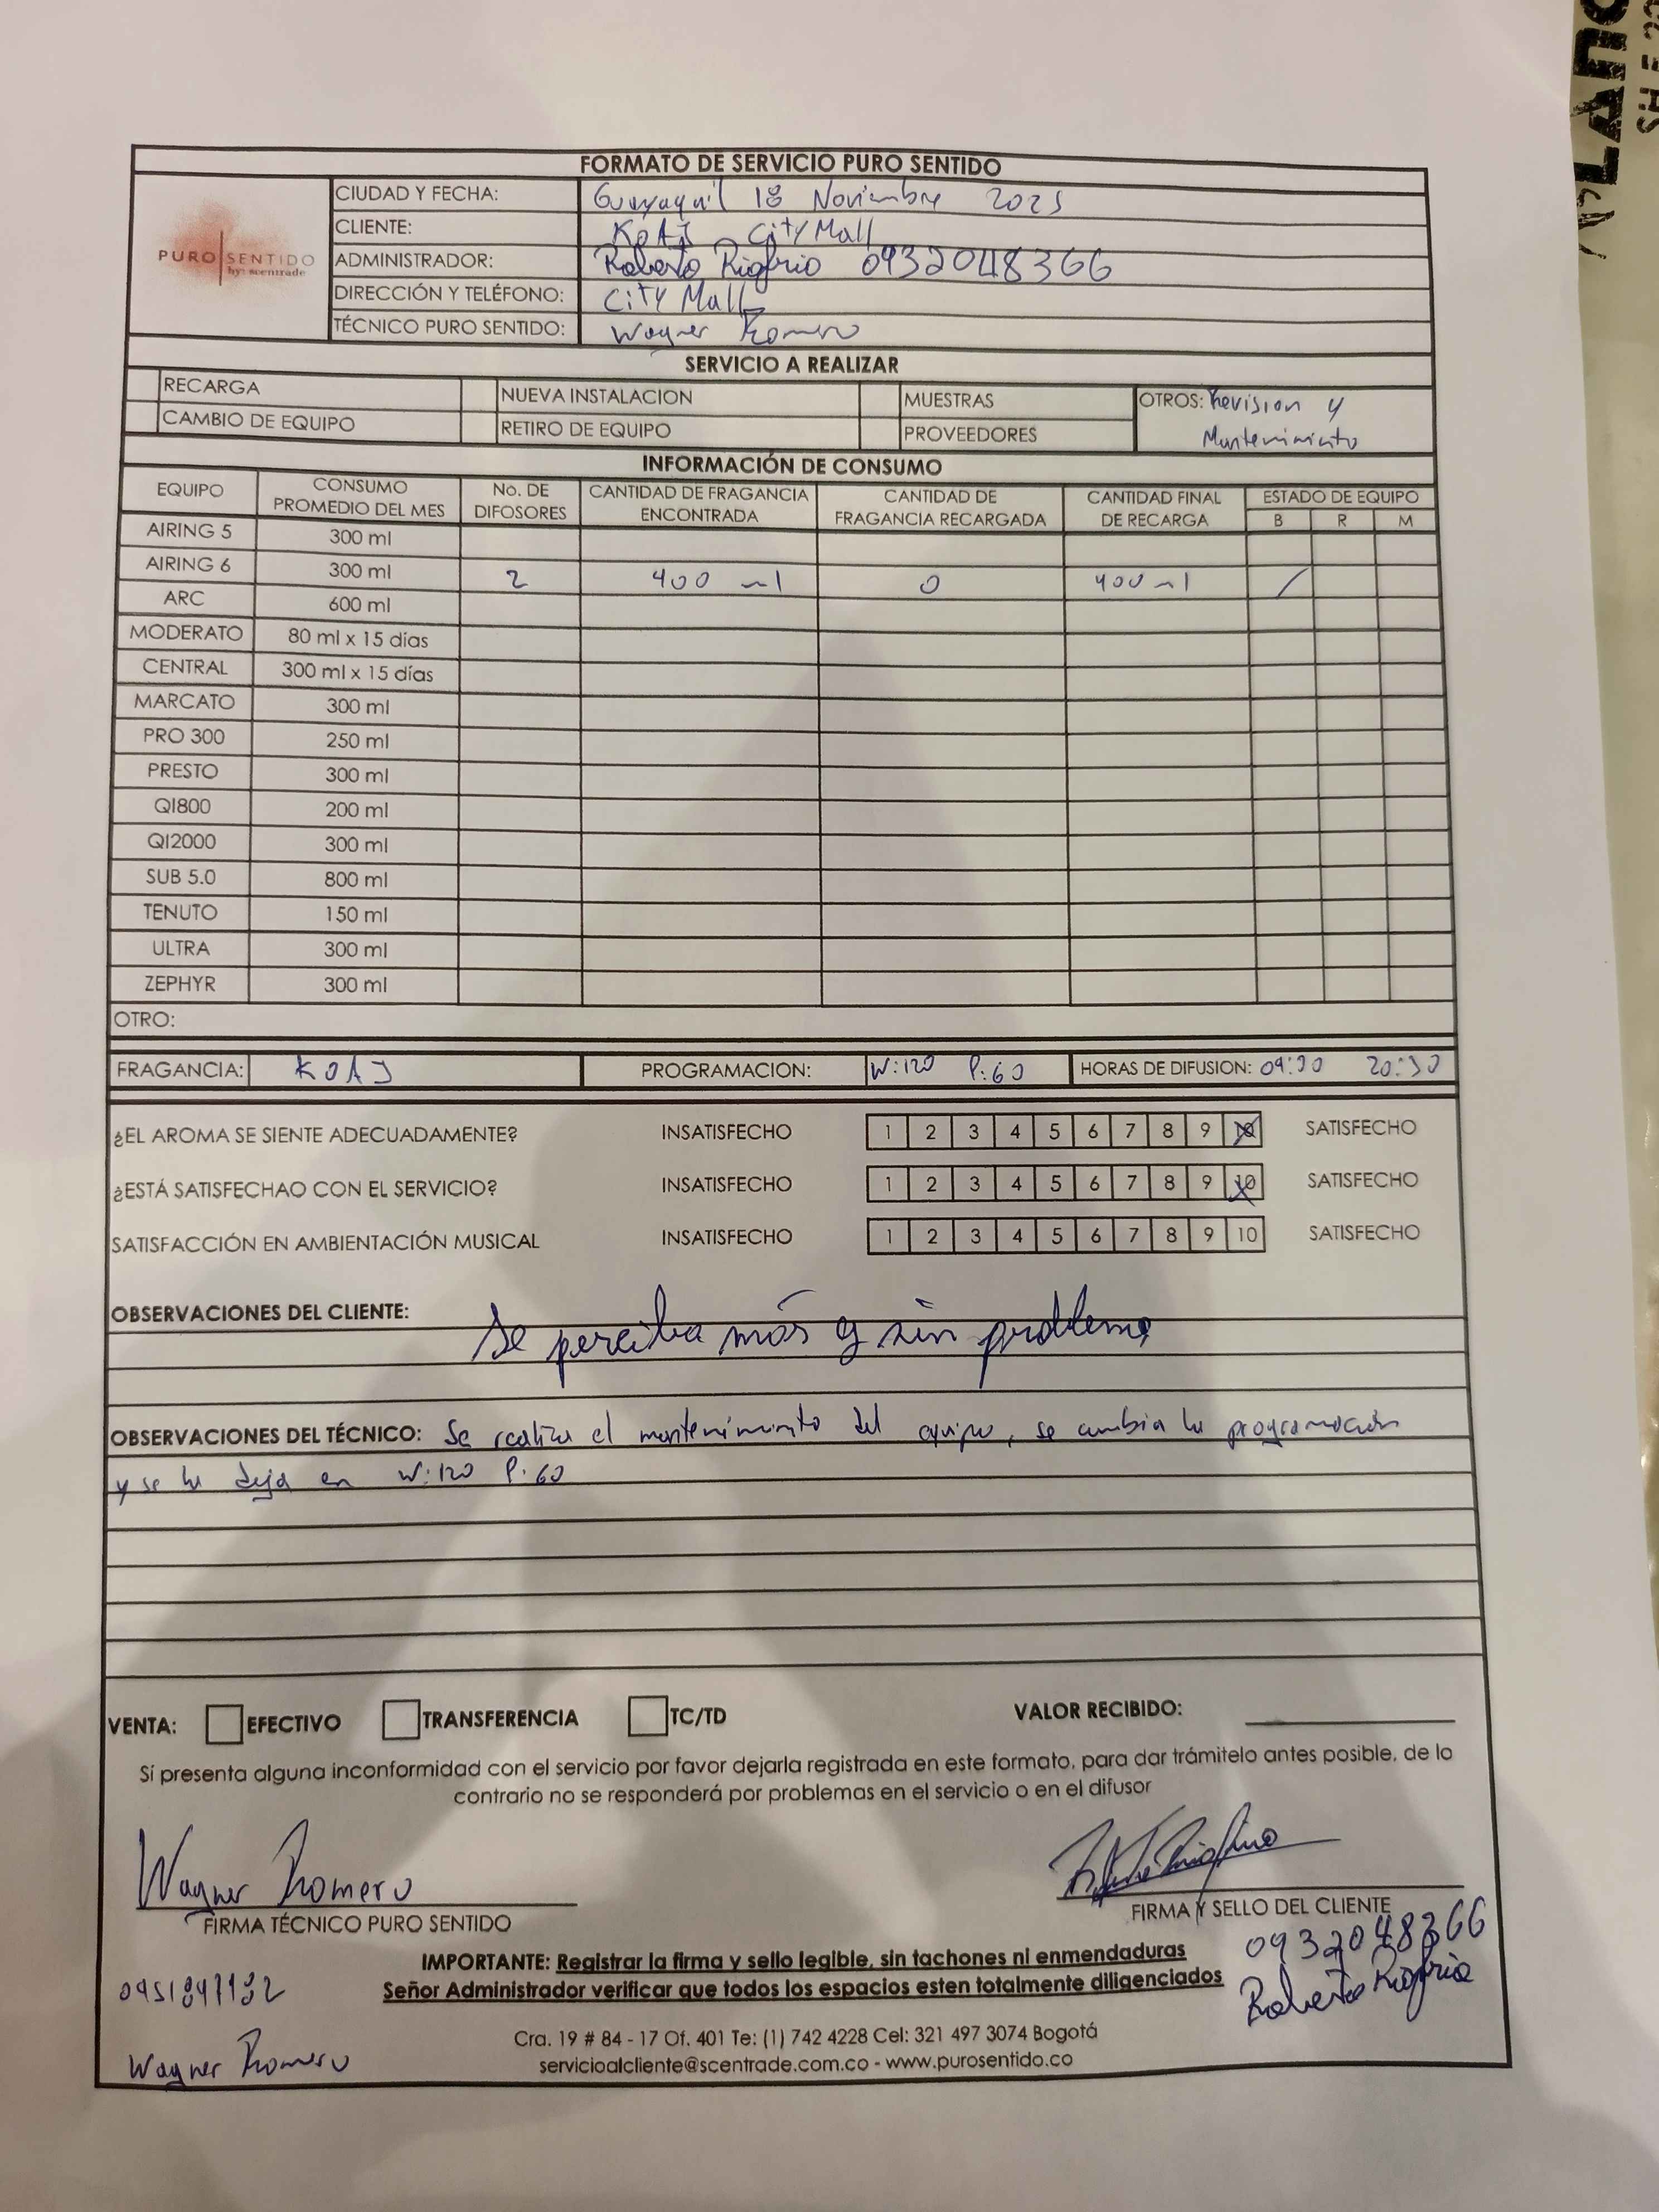 FORMATO DE SERVICIO PURO SENTIDO
PURO SENTIDO
by: scentrade
CIUDAD Y FECHA: Guayaquil 18 Noviembre 2025
CLIENTE: KOAJ City Mall
ADMINISTRADOR: Roberto Riofrio 0932048366
DIRECCIÓN Y TELÉFONO: City Mall
TÉCNICO PURO SENTIDO: Wagner Romero
SERVICIO A REALIZAR
RECARGA NUEVA INSTALACION MUESTRAS OTROS: Revision y
CAMBIO DE EQUIPO RETIRO DE EQUIPO PROVEEDORES Mantenimiento
INFORMACIÓN DE CONSUMO
EQUIPO CONSUMO PROMEDIO DEL MES No. DE DIFOSORES CANTIDAD DE FRAGANCIA ENCONTRADA CANTIDAD DE FRAGANCIA RECARGADA CANTIDAD FINAL DE RECARGA ESTADO DE EQUIPO
B R M
AIRING 5 300 ml
AIRING 6 300 ml 2 400 ml 0 400 ml /
ARC 600 ml
MODERATO 80 ml x 15 días
CENTRAL 300 ml x 15 días
MARCATO 300 ml
PRO 300 250 ml
PRESTO 300 ml
QI800 200 ml
QI2000 300 ml
SUB 5.0 800 ml
TENUTO 150 ml
ULTRA 300 ml
ZEPHYR 300 ml
OTRO:
FRAGANCIA: KOAJ PROGRAMACION: W:120 P:60 HORAS DE DIFUSION: 20:30
¿EL AROMA SE SIENTE ADECUADAMENTE? INSATISFECHO 1 2 3 4 5 6 7 8 9 10 SATISFECHO
¿ESTÁ SATISFECHAO CON EL SERVICIO? INSATISFECHO 1 2 3 4 5 6 7 8 9 10 SATISFECHO
SATISFACCIÓN EN AMBIENTACIÓN MUSICAL INSATISFECHO 1 2 3 4 5 6 7 8 9 10 SATISFECHO
OBSERVACIONES DEL CLIENTE: Se perciba más y sin problema
OBSERVACIONES DEL TÉCNICO: Se realiza el mantenimiento del equipo, se cambia la programación
y se la deja en W:120 P:60
VENTA: EFECTIVO TRANSFERENCIA TC/TD VALOR RECIBIDO:
Sí presenta alguna inconformidad con el servicio por favor dejarla registrada en este formato, para dar trámitelo antes posible, de lo
contrario no se responderá por problemas en el servicio o en el difusor
Wagner Romero
FIRMA TÉCNICO PURO SENTIDO FIRMA Y SELLO DEL CLIENTE
0932048366
Roberto Riofrio
IMPORTANTE: Registrar la firma y sello legible, sin tachones ni enmendaduras
Señor Administrador verificar que todos los espacios esten totalmente diligenciados
Wagner Romero
Cra. 19 # 84 - 17 Of. 401 Te: (1) 742 4228 Cel: 321 497 3074 Bogotá
servicioalcliente@scentrade.com.co - www.purosentido.co